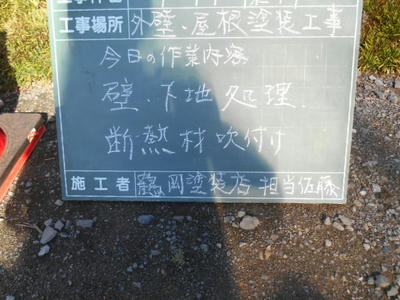 工事場所 外壁、屋根塗装工事
今日の作業内容
壁、下地処理
断熱材吹付け
施工者 鶴岡塗装店 担当佐藤